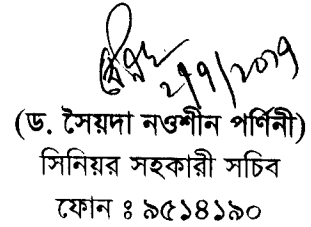 ২/৭/২০১৭
(ড. সৈয়দা নওশীন পর্ণিনী)
সিনিয়র সহকারী সচিব
ফোন ঃ ৯৫১৪১৯০